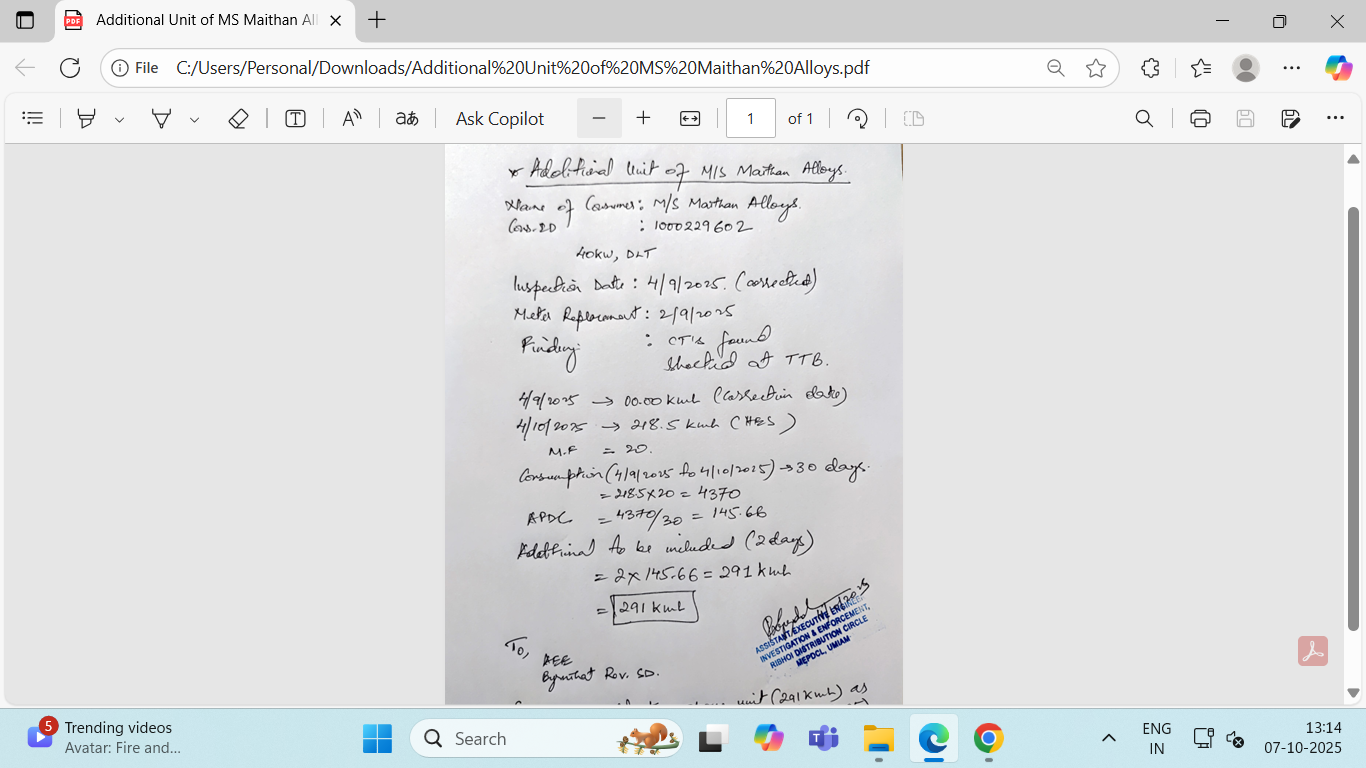 Additional Unit of MS Maithan All
File
C:/Users/Personal/Downloads/Additional%20Unit%20of%20MS%20Maithan%20Alloys.pdf
Ask Copilot
1 of 1
* Additional Unit of M/S Maithan Alloys.
Name of Consumer : M/S Maithan Alloys.
Cons. ID : 1000229602
40KW, DLT
Inspection Date : 4/9/2025. (corrected)
Meter Replacement : 2/9/2025
Finding : CT's found
shorted at TTB.
4/9/2025 → 00.00 kwh (Correction date)
4/10/2025 → 218.5 kwh (HES)
M.F = 20.
Consumption (4/9/2025 to 4/10/2025) → 30 days.
= 218.5 x 20 = 4370
APDC = 4370/30 = 145.66
Additional to be included (2 days)
= 2 x 145.66 = 291 kwh
= 291 kwh
ASSISTANT EXECUTIVE ENGINEER
INVESTIGATION & ENFORCEMENT,
RIBHOI DISTRIBUTION CIRCLE
MEPDCL, UMIAM
To,
AEE
Byrnihat Rev. SD.
unit (291 kwh) as
5
Trending videos
Avatar: Fire and...
Search
ENG
IN
13:14
07-10-2025